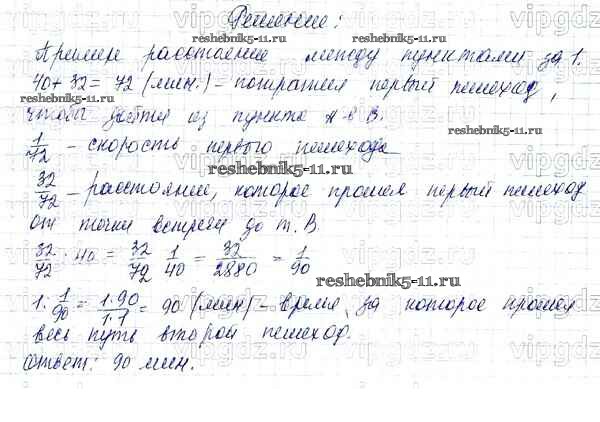 Решение:
Примем расстояние между пунктами за 1.
40+32=72 (мин.) - потратил первый пешеход,
чтобы дойти из пункта А в В.
1/72 - скорость первого пешехода
32/72 - расстояние, которое прошел первый пешеход
от точки встречи до т. В.
32/72 : 40 = 32/72 · 1/40 = 32/2880 = 1/90
1 : 1/90 = 1·90/1·1 = 90 (мин) - время, за которое прошел
весь путь второй пешеход.
Ответ: 90 мин.
reshebnik5-11.ru
reshebnik5-11.ru
reshebnik5-11.ru
reshebnik5-11.ru
reshebnik5-11.ru
reshebnik5-11.ru
vipgdz.com